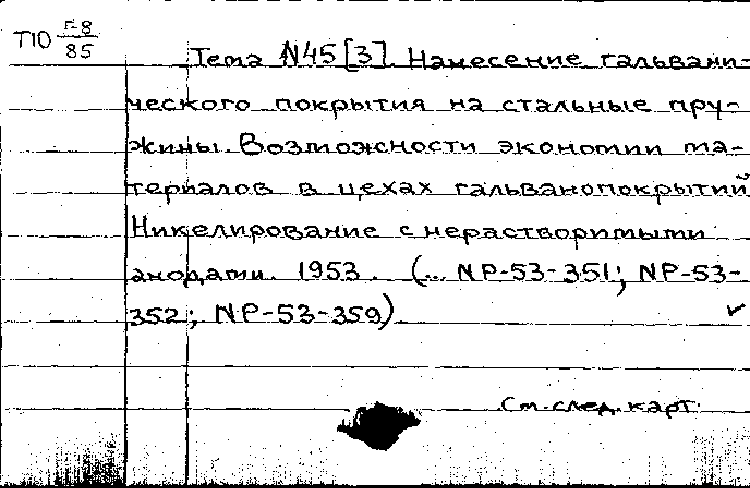 Т10 Г-8
85
Тема N45[3]. Нанесение гальвани-
ческого покрытия на стальные пру-
жины. Возможности экономии ма-
териалов в цехах гальванопокрытий
Никелирование с нерастворимыми
анодами. 1953. (... NP-53-351; NP-53-
352; NP-53-359).
См. след. карт.